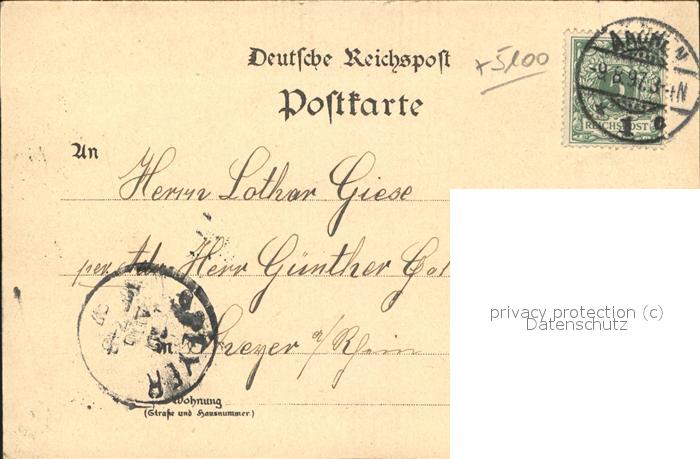 Deutsche Reichspost
+5,00
Postkarte
AACHEN
9 8 97 3-4N
* 1 c
5
REICHSPOST
An
Herrn Lothar Giese
per Adr. Herr Günther
in Speyer a/Rhein
SPEYER
Wohnung
(Straße und Hausnummer.)
privacy protection (c)
Datenschutz